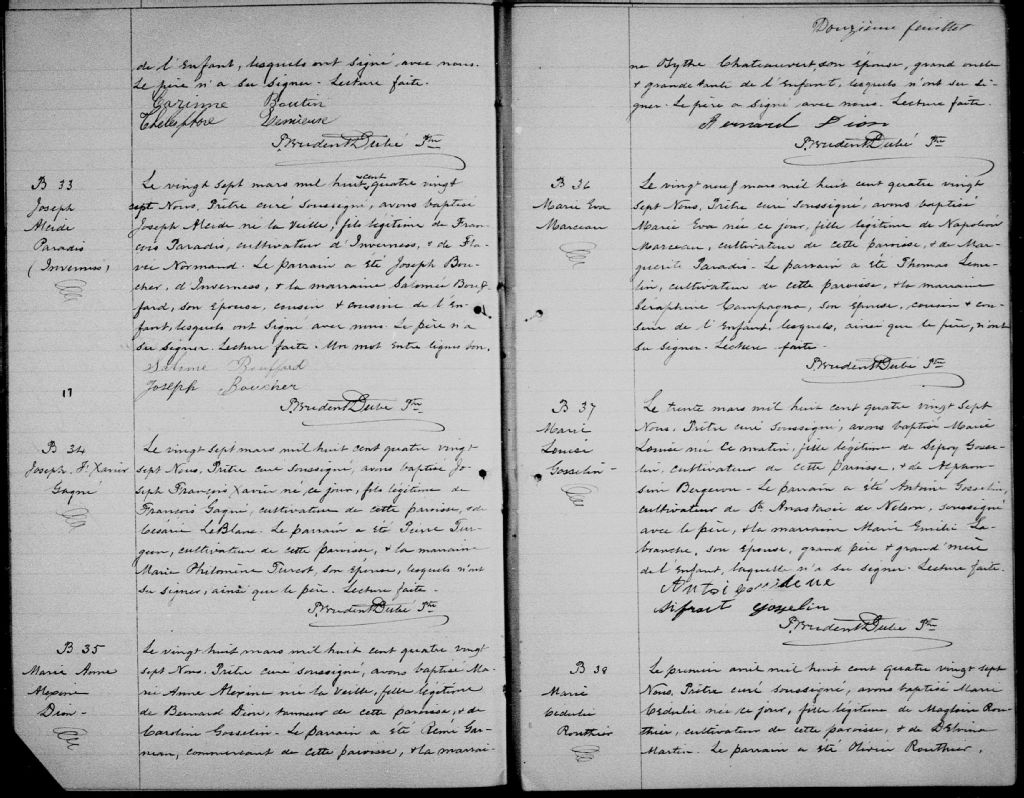 de l'Enfant, lesquels ont signé avec nous.
Le père n'a su signer. Lecture faite.
Corinne Boutin
Thelesphore Lemieuse
P. Prudent Dubé Ptre
B 33
Joseph
Alcide
Paradis
(Inverness)
Le vingt sept mars mil huit cent quatre vingt
sept Nous, Prêtre curé soussigné, avons baptisé
Joseph Alcide né la Veille, fils légitime de Fran
çois Paradis, cultivateur d'Inverness, & de Fla
vie Normand. Le parrain a été Joseph Bou
cher, d'Inverness, & la marraine Salomée Bouf
fard, son Epouse, cousin & cousine de l'En
fant, lesquels ont signé avec nous. Le père n'a
su signer. Lecture faite. Un mot entre lignes bon.
Salomé Bouffard
Joseph Boucher
P. Prudent Dubé Ptre
17
B 34
Joseph. F. Xavier
Gagné
Le vingt sept mars mil huit cent quatre vingt
sept Nous, Prêtre curé soussigné, avons baptisé Jo-
seph François Xavier né ce jour, fils légitime de
François Gagné, cultivateur de cette paroisse, & de
Césarie LeBlanc. Le parrain a été Pierre Tur-
geon, cultivateur de cette paroisse, & la marraine
Marie Philomène Turcot, son Epouse, lesquels n'ont
su signer, ainsi que le père. Lecture faite.
P. Prudent Dubé Ptre
B 35
Marie Anne
Alexina
Dion-
Le vingt huit mars mil huit cent quatre vingt
sept Nous, Prêtre curé soussigné, avons baptisé Ma-
rie Anne Alexina née la Veille, fille légitime
de Bernard Dion, tanneur de cette paroisse, & de
Caroline Gosselin. Le parrain a été Rémi Gar-
neau, commercant de cette paroisse, & la marrai-
Douzième feuillet
ne Chateauvert, son épouse, grand oncle
& grande tante de l'Enfant, lesquels n'ont su si-
gner. Le père a signé avec nous. Lecture faite.
Bernard Dion
P. Prudent Dubé Ptre
B 36
Marie Eva
Marceau
Le vingt neuf mars mil huit cent quatre vingt
sept Nous, Prêtre curé soussigné, avons baptisé
Marie Eva née ce jour, fille légitime de Napoléon
Marceau, cultivateur de cette paroisse, & de Mar-
guerite Paradis. Le parrain a été Thomas Leme-
lin, cultivateur de cette paroisse, & la marraine
Séraphine Campagna, son épouse, cousin & cou-
sine de l'Enfant, lesquels, ainsi que le père, n'ont
su signer. Lecture faite.
P. Prudent Dubé Ptre
B 37
Marie
Louise
Gosselin-
Le trente mars mil huit cent quatre vingt sept
Nous, Prêtre curé soussigné, avons baptisé Marie
Louise née ce matin, fille légitime de Gosse-
lin, cultivateur de cette paroisse, & de Alphon-
sine Bergeron. Le parrain a été Antoine Gosselin,
cultivateur de St Anastasie de Nelson, soussigné
avec le père, & la marraine Marie Emilie La-
branche, son épouse, grand père & grand'mère
de l'Enfant, laquelle n'a su signer. Lecture faite.
gosselin
P. Prudent Dubé Ptre
B 38
Marie
Cédulie
Routhier
Le premier avril mil huit cent quatre vingt sept
Nous, Prêtre curé soussigné, avons baptisé Marie
Cédulie née ce jour, fille légitime de Magloire Rou-
thier, cultivateur de cette paroisse, & de Delvina
Martin. Le parrain a été Olivier Routhier,